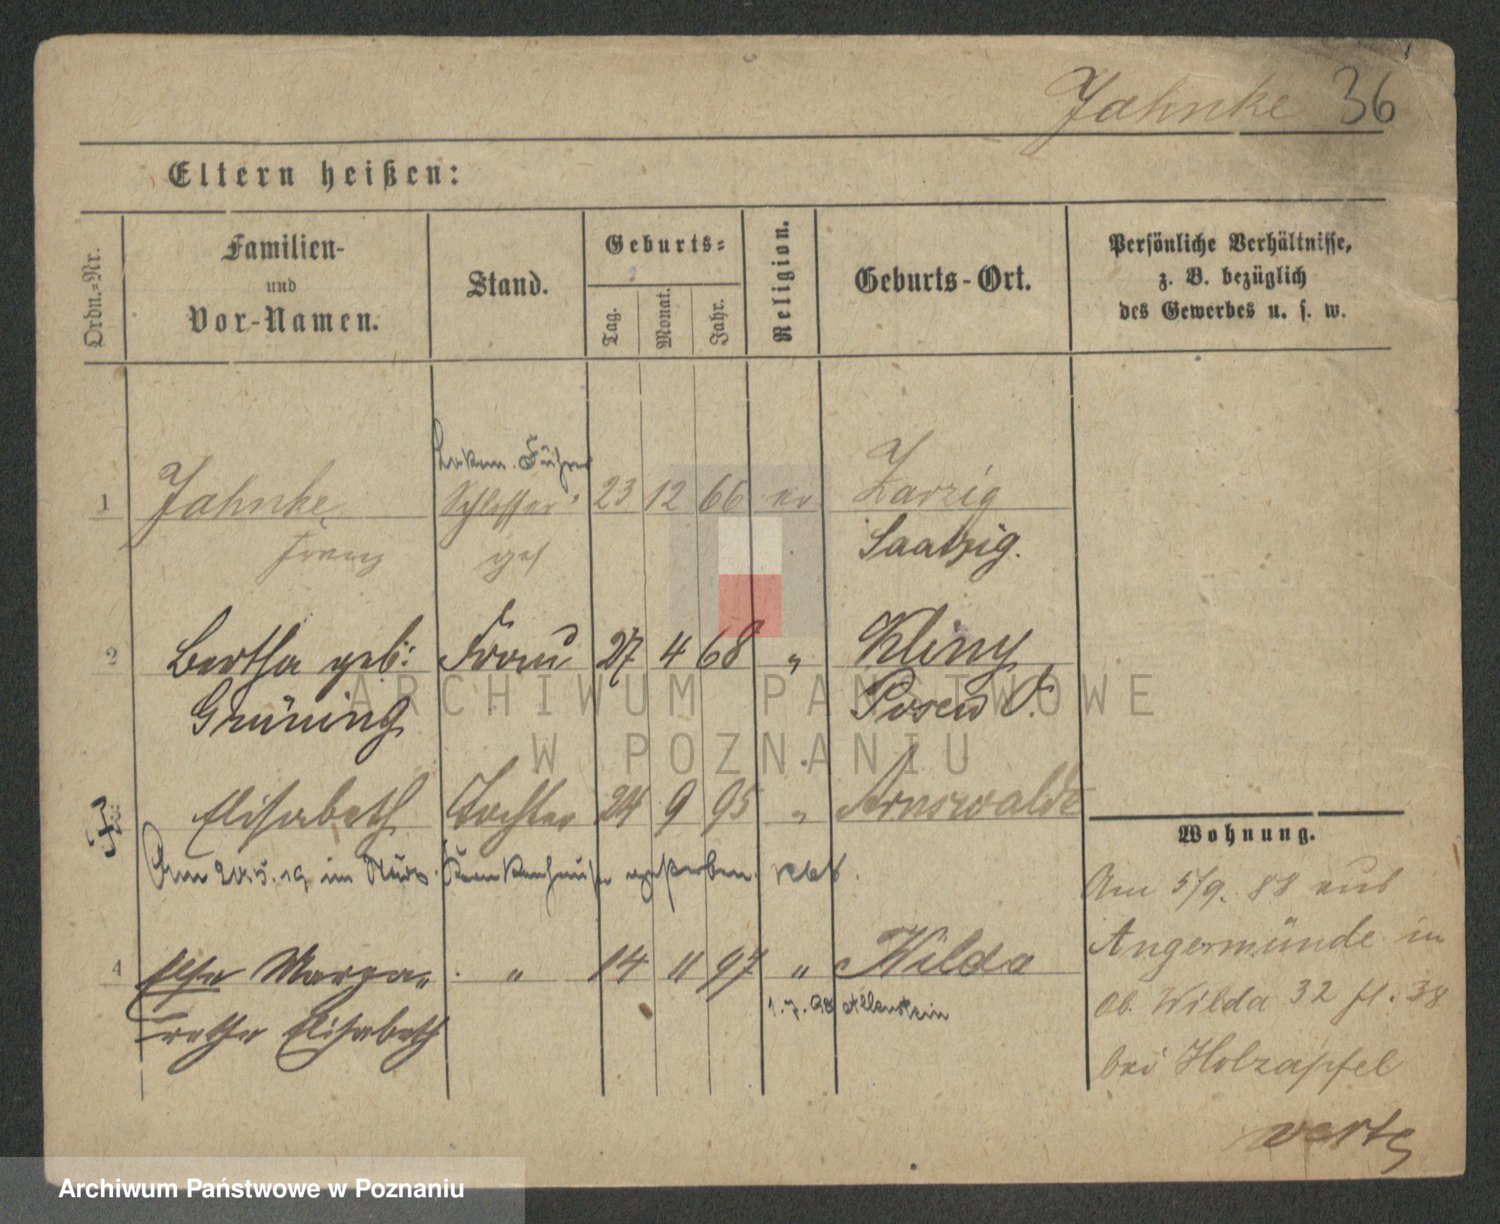 Jahnke 36
Eltern heißen:
Ordn.-Nr.
Familien-
und
Vor-Namen.
Stand.
Geburts-
Tag.
Monat.
Jahr.
Religion.
Geburts-Ort.
Persönliche Verhältnisse,
z. B. bezüglich
des Gewerbes u. s. w.
Lokom. Führer
1 Jahnke Schlosser 23 12 66 ev Zarzig
Franz Saatzig.
2 Bertha geb: Frau 27 4 68 " Kliny
Grüning Posen O.
3 Elisabeth Tochter 24 9 95 " Arnswalde
Am 20.5.19 im Krankenhause gestorben.
4 Else Marga- " 14 11 97 " Wilda
rethe Elisabeth
1.7.98 Allenstein
Wohnung.
Am 5/9. 88 aus
Angermünde in
Ob. Wilda 32 fl. 38
bei Holzapfel
verte
ARCHIWUM PAŃSTWOWE
W POZNANIU
Archiwum Państwowe w Poznaniu